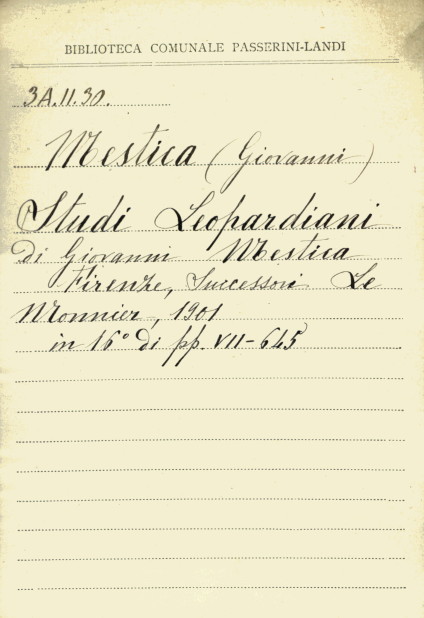 BIBLIOTECA COMUNALE PASSERINI-LANDI
3A.II.30.
Mestica (Giovanni)
Studi Leopardiani
di Giovanni Mestica
Firenze, Successori Le
Monnier, 1901
in 16° di pp. VII-645